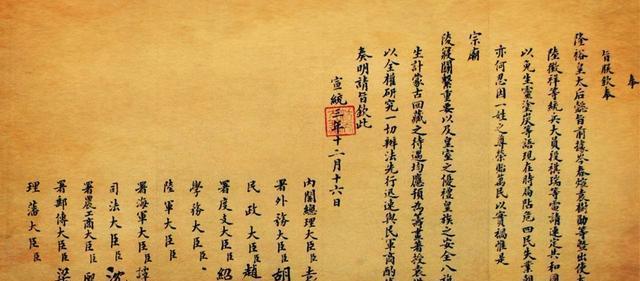 奉
旨朕欽奉
隆裕皇太后懿旨前據岑春煊袁樹勛等暨出使大
陸徵祥等統兵大員段祺瑞等電請速定共和國
以免生靈塗炭等語現在時局阽危四民失業朝
亦何忍因一姓之尊榮貽萬民以實禍惟是
宗廟
陵寢關繫重要以及皇室之優禮皇族之安全八旗
生計蒙古回藏之待遇均應預為籌畫著授袁
以全權研究一切辦法先行迅速與民軍商酌
奏明請旨欽此
宣統三年十二月十六日
內閣總理大臣臣袁
署外務大臣臣胡
民政大臣臣趙
署度支大臣臣紹
學務大臣臣
陸軍大臣臣
署海軍大臣臣譚
司法大臣臣沈
署農工商大臣臣熙
署郵傳大臣臣梁
理藩大臣臣